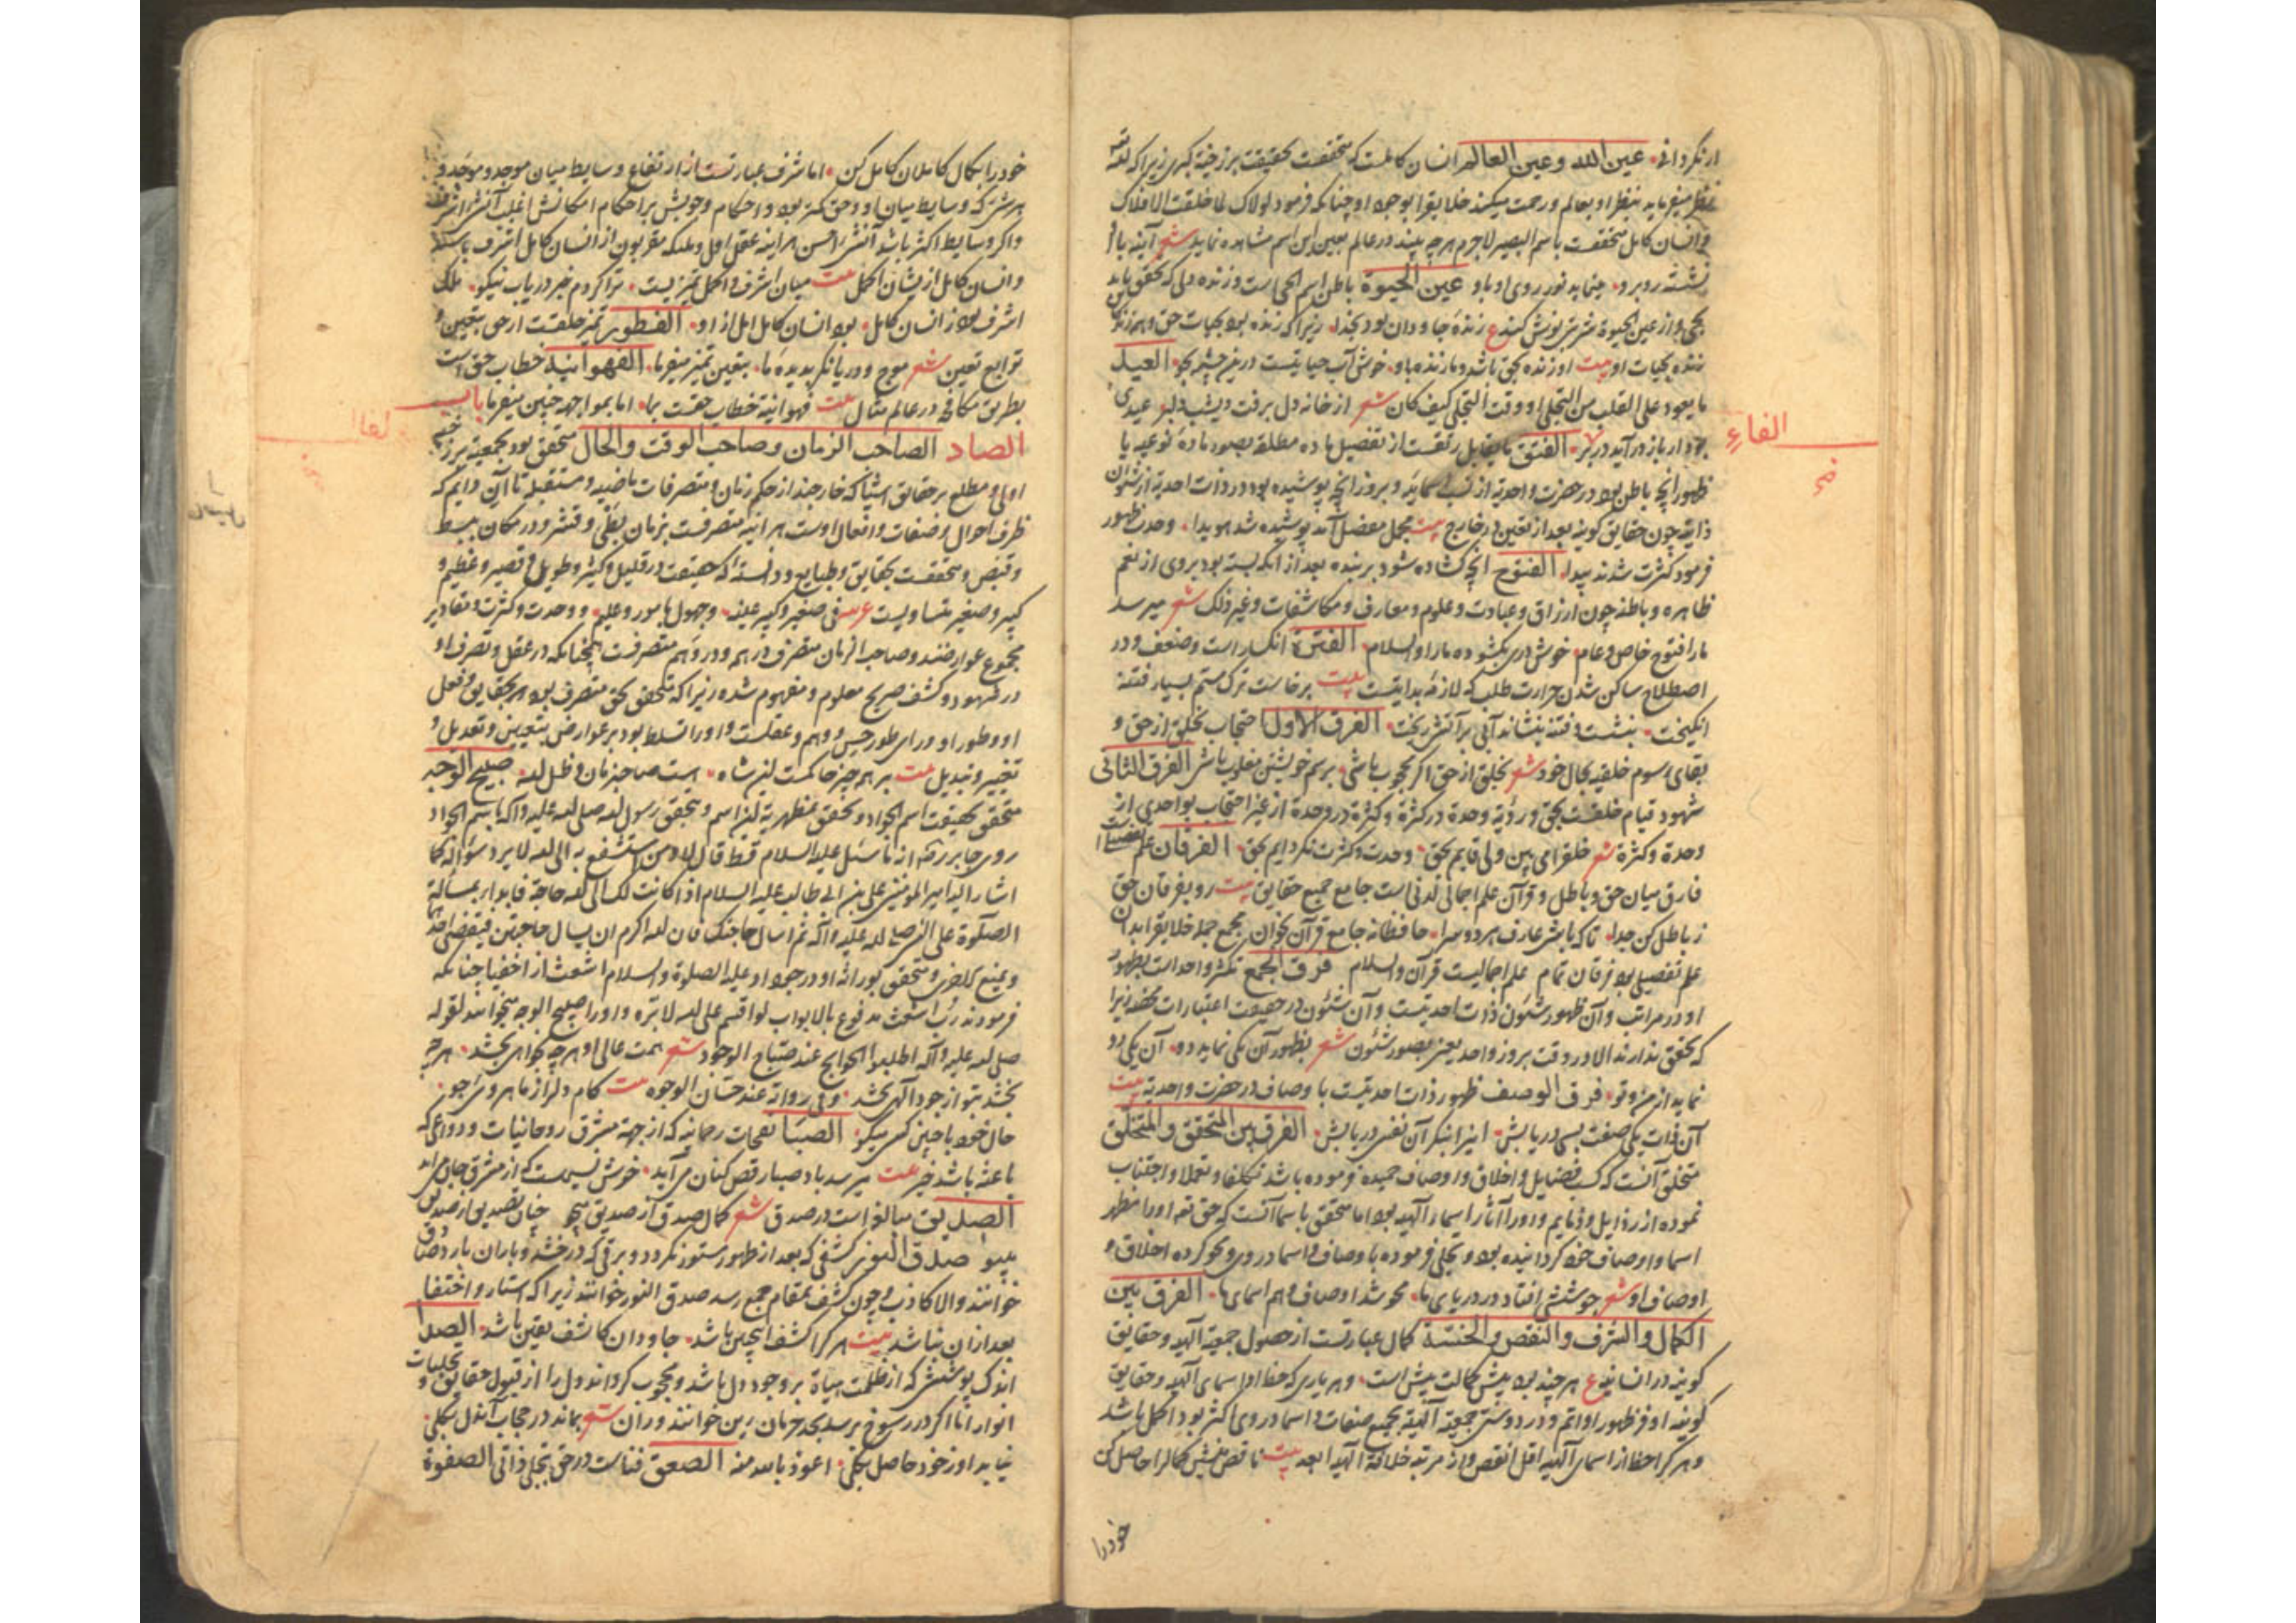 ار نکردانی عین الله وعین العالم انسان کاملست که متحققست بحقیقت برزخیة کبری زیرا که لله
بنظر او بعالم ورحمت میکند خلایقرا بوجود او چنانکه فرمود لولاک لما خلقت الافلاک
وانسان کامل متحققست باسم البصیر لاجرم هر چه بیند در عالم بعین این اسم مشاهده نماید شعر آینه با او
نشسته روبرو مینماید نور روی او باو عین الحیوة باطن اسم الحی است وزنده دلی که تحقق یابد
بحی واز عین الحیوة شربتی نوش کند ع زنده جاودان بود بخدا زیرا که زنده بود بحیات حق وهر زنده
زنده بحیات او بیت او زنده بحق باشد وما زنده باو خوش آب حیاتیست درین چشمه بجو العید
ما یعود علی القلب من التجلی او وقت التجلی کیف کان شعر از خانه دل برفت دلبر عیدی
بود ار باز در آید در بر الفتق ما یقابل رتقست از تفصیل ماده مطلقه بصور ماده نوعیه با
ظهور آنچه باطن بود در حضرت واحدیة از نسب اسمائیه وبروز آنچه پوشیده بود در ذات احدیة از شئون
ذاتیه چون حقایق کونیه بعد از تعین در خارج بیت مجمل مفصل آمد پوشیده شد هویدا وحدت ظهور
فرمود کثرت شدند پیدا الفتوح آنچه کشاده شود بر بنده بعد از آنکه بسته بود بروی از نعم
ظاهره وباطنه چون ارزاق وعبادت وعلوم ومعارف ومکاشفات وغیر ذلک شعر میرسد
ما را فتوح خاص وعام خوش دری بکشوده ما را والسلام الفترة انکسار است وضعف ودر
اصطلاح ساکن شدن حرارت طلب که لازمه بدایتست بیت برخاست ترک مستم بسیار فتنه
انکیخت بنشست وفتنه بنشاند آبی بر آتش ریخت الفرق الاول احتجاب بخلق از حق و
بقای رسوم خلقیه بحال خود شعر بخلق از حق اکر محجوب باشی برسم خویشتن مغلوب باشی الفرق الثانی
شهود قیام خلقست بحق ورؤیة وحدة در کثرة وکثرة در وحدة از غیر احتجاب بواحدی از
وحدة وکثرة شعر خلق را می بین ولی قایم بحق وحدت وکثرت نکر دایم بحق الفرقان علم تفصیلی
فارق میان حق وباطل وقرآن علم اجمالی لدنی است جامع جمیع حقایق بیت رو بفرقان حق
ز باطل کن جدا تا که باشی عارف هر دو سرا حافظانه جامع قرآن بخوان مجمع جمله خلایق را بدان
علم تفصیلی بود فرقان تمام علم اجمالیست قرآن والسلام فرق الجمع تکثر واحد است بظهور
او در مراتب وآن ظهور شئون ذات احدیتست وآن شئون در حقیقت اعتبارات محضه زیرا
که تحقق ندارند الا در وقت بروز واحد یعنی بصور شئون شعر بظهور آن یکی نماید دو آن یکی رو
نماید از من وتو فرق الوصف ظهور ذات احدیتست با وصاف در حضرت واحدیة بیت
آن ذات یکی صفت بسی دریابش این را بنکر آن نفسی دریابش الفرق بین المتحقق والمتخلق
متخلق آنست که کسب فضایل واخلاق واوصاف حمیده فرموده باشد تکلفا وتعملا واجتناب
نموده از رذایل وذمایم واو را آثار اسماء الهیه بود اما متحقق باسما آنست که حق تعه او را مظهر
اسما واوصاف خود کردانیده بود وتجلی فرموده باوصاف واسما در وی ومحو کرده اخلاق و
اوصاف او شعر جوششی افتاد در دریای ما محو شد اوصاف وهم اسمای ما الفرق بین
الکمال والشرف والنقص والخسة کمال عبارتست از حصول جمعیة الهیه وحقایق
کونیه در انسان ع هر چند بود بیش کمالت بیش است وهر یاری که حظ او از اسمای الهیه وحقایق
کونیه اوفر ظهور او اتم ودر وی جمعیة الهیه بجمیع صفات واسما در وی اکثر بود اکمل باشد
وهر کرا حظ از اسمای الهیه اقل انقص واز مرتبه خلافة الهیه ابعد بیت ناقص منشین کمال را حاصل کن
خود را
الفاء
خود را بکمال کاملان کامل کن اما شرف عبارتست از ارتفاع وسایط میان موجد وموجد و
هر شئ که وسایط میان او وحق کمتر بود واحکام وجوبش بر احکام امکانش اغلب آنشئ اشرف
واکر وسایط اکثر باشد آنشئ اخس هر آینه عقل اول وملائکه مقربون از انسان کامل اشرف باشند
وانسان کامل از یشان اکمل بیت میان اشرف واکمل تمیزیست ترا کردم خبر دریاب نیکو ملک
اشرف بود ز انسان کامل بود انسان کامل اکمل از او الفطور تمیز خلقست از حق بتعین و
توابع تعین شعر موج ودریا نکر بدیده ما بتعین تمیز میفرما الفهوانیة خطاب حق است
بطریق مکافحه در عالم مثال بیت فهوانیه خطاب حقست بما اما بمواجهه چنین میفرما باب
الصاد الصاحب الزمان وصاحب الوقت والحال متحقق بود بجمعیة برزخیه
اولی ومطلع بر حقایق اشیا که خارجند از حکم زمان وتصرفات ماضیه ومستقبله تا آن دایم که
ظرف احوال وصفات وافعال اوست هر آینه متصرفست بزمان بطی ونشر ودر مکان ببسط
وقبض ومتحققست بحقایق وطبایع ودانسته که حقیقت در قلیل وکثیر وطویل وقصیر وعظیم و
کبیر وصغیر متساویست
مجموع عوارضند وصاحب الزمان متصرف در هم ودر وهم متصرفست همچنانکه در عقل وتصرف او
در شهود وکشف صریح معلوم ومفهوم شده زیرا که متحقق بحق متصرف بود بحقایق وفعل
او وطور او ورای طور حس ووهم وعقلست واو را تسلط بود بر عوارض بتعیین وتعدیل و
تغییر وتبدیل بیت بر همه چیز حاکمست این شاه است صاحبزمان وظل لله صبیح الوجه
متحقق بحقیقت اسم الجواد ومتحقق بمظهریة این اسم وبتحقق رسول لله صلی لله علیه وآله باسم الجواد
روی جابر رضه انه ما سئل علیه السلام قط قال لا ومن استشفع به الی لله لا یرد سؤاله کما
اشار الیه امیر المؤمنین علی بن ابی طالب علیه السلام اذا کانت لک الی لله حاجة فابدا بمسألة
الصلوة علی النبی صلی لله علیه وآله ثم اسال حاجتک فان لله اکرم ان یسال حاجتین فیقضی احدیهما
ویمنع الاخری ومتحقق بوراثه او در جود او علیه الصلوة والسلام اشعث از اخفیا چنانکه
فرمودند رب اشعث مدفوع بالابواب لو اقسم علی لله لابره واو را صبیح الوجه میخوانند لقوله
صلی لله علیه وآله اطلبوا الحوایج عند صباح الوجوه شعر همت عالی او هر چه بخواهی بخشد هر چه
بخشد بتو از جود الهی بخشد وفی روایة عند حسان الوجوه بیت کام دل از ماه روی جو
حال خود با چنین کسی میکو الصبا نفحات رحمانیه که از جهة مشرق روحانیات ودواعی که
باعثه باشد بر خیر بیت میرسد باد صبا رقص کنان می آید خوش نسیمست که از مشرق جان می آید
الصدیق مبالغه است در صدق شعر کمال صدق از صدیق میجو
صدق النور کشفی که بعد از ظهور مستور نکردد وبرقی که درخشد وباران بارد صادق
خوانند والا کاذب وچون کشف بمقام جمع رسد صدق النور خوانند زیرا که استتار واختفا
بعد از آن نباشد بیت هر کرا کشف اینچنین باشد جاودان کاشف یقین باشد الصدا
اندک پوششی که از ظلمت هیآت بر وجه دل باشد ومحجوب کرداند دل را از قبول حقایق وتجلیات
انوار اما اکر در رسوخ برسد بحد حرمان رین خوانند وران شعر بماند در حجاب آندل بکلی
نیابد او ز خود حاصل بکلی اعوذ بالله منه الصعق فناست در حق بتجلی ذاتی الصفوة